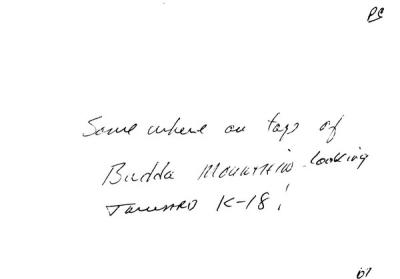 PC
Some where on tops of
Budda Mountain looking
Towards K-18!